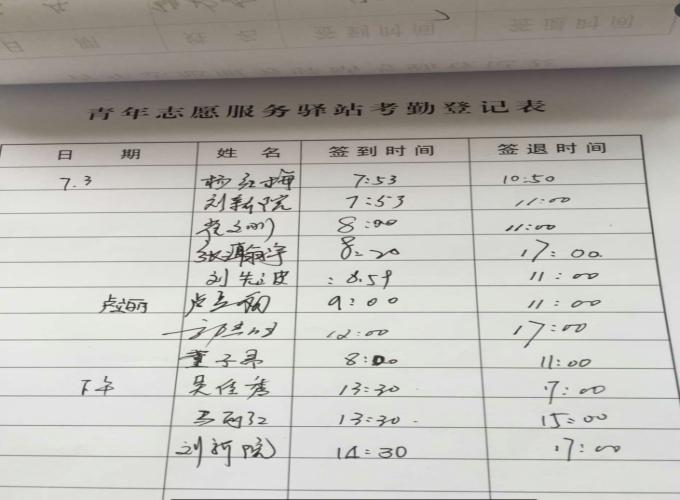 青年志愿服务驿站考勤登记表
日 期 姓 名 签到时间 签退时间
7.3 杨红梅 7:53 10:50
刘新院 7:53 11:00
8:00 11:00
张瀛翰宇 8:20 17:00
刘先波 :8.59 11:00
卢立丽 卢立丽 9:00 11:00
12:00 17:00
董子昂 8:00 11:00
下午 吴佳秀 13:30 17:00
马丽红 13:30. 15:00
刘新院 14:30 17:00